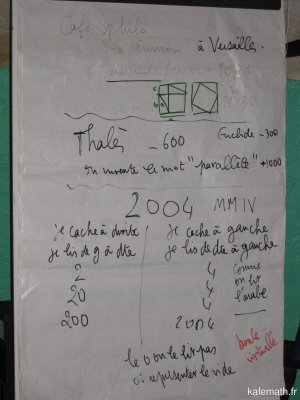 Café philo
"la réunion" à Versailles.
Thalès -600 Euclide -300
on invente le mot "parallèle" +1000
2004 MMIV
je cache à droite je cache à gauche
je lis de g à dte je lis de dte à gauche
2 4 comme
20 4 on lit
200 4 l'arabe
2004
le 0 on le lit pas
0: représenter le vide
boule
virtuelle
kafemath.fr